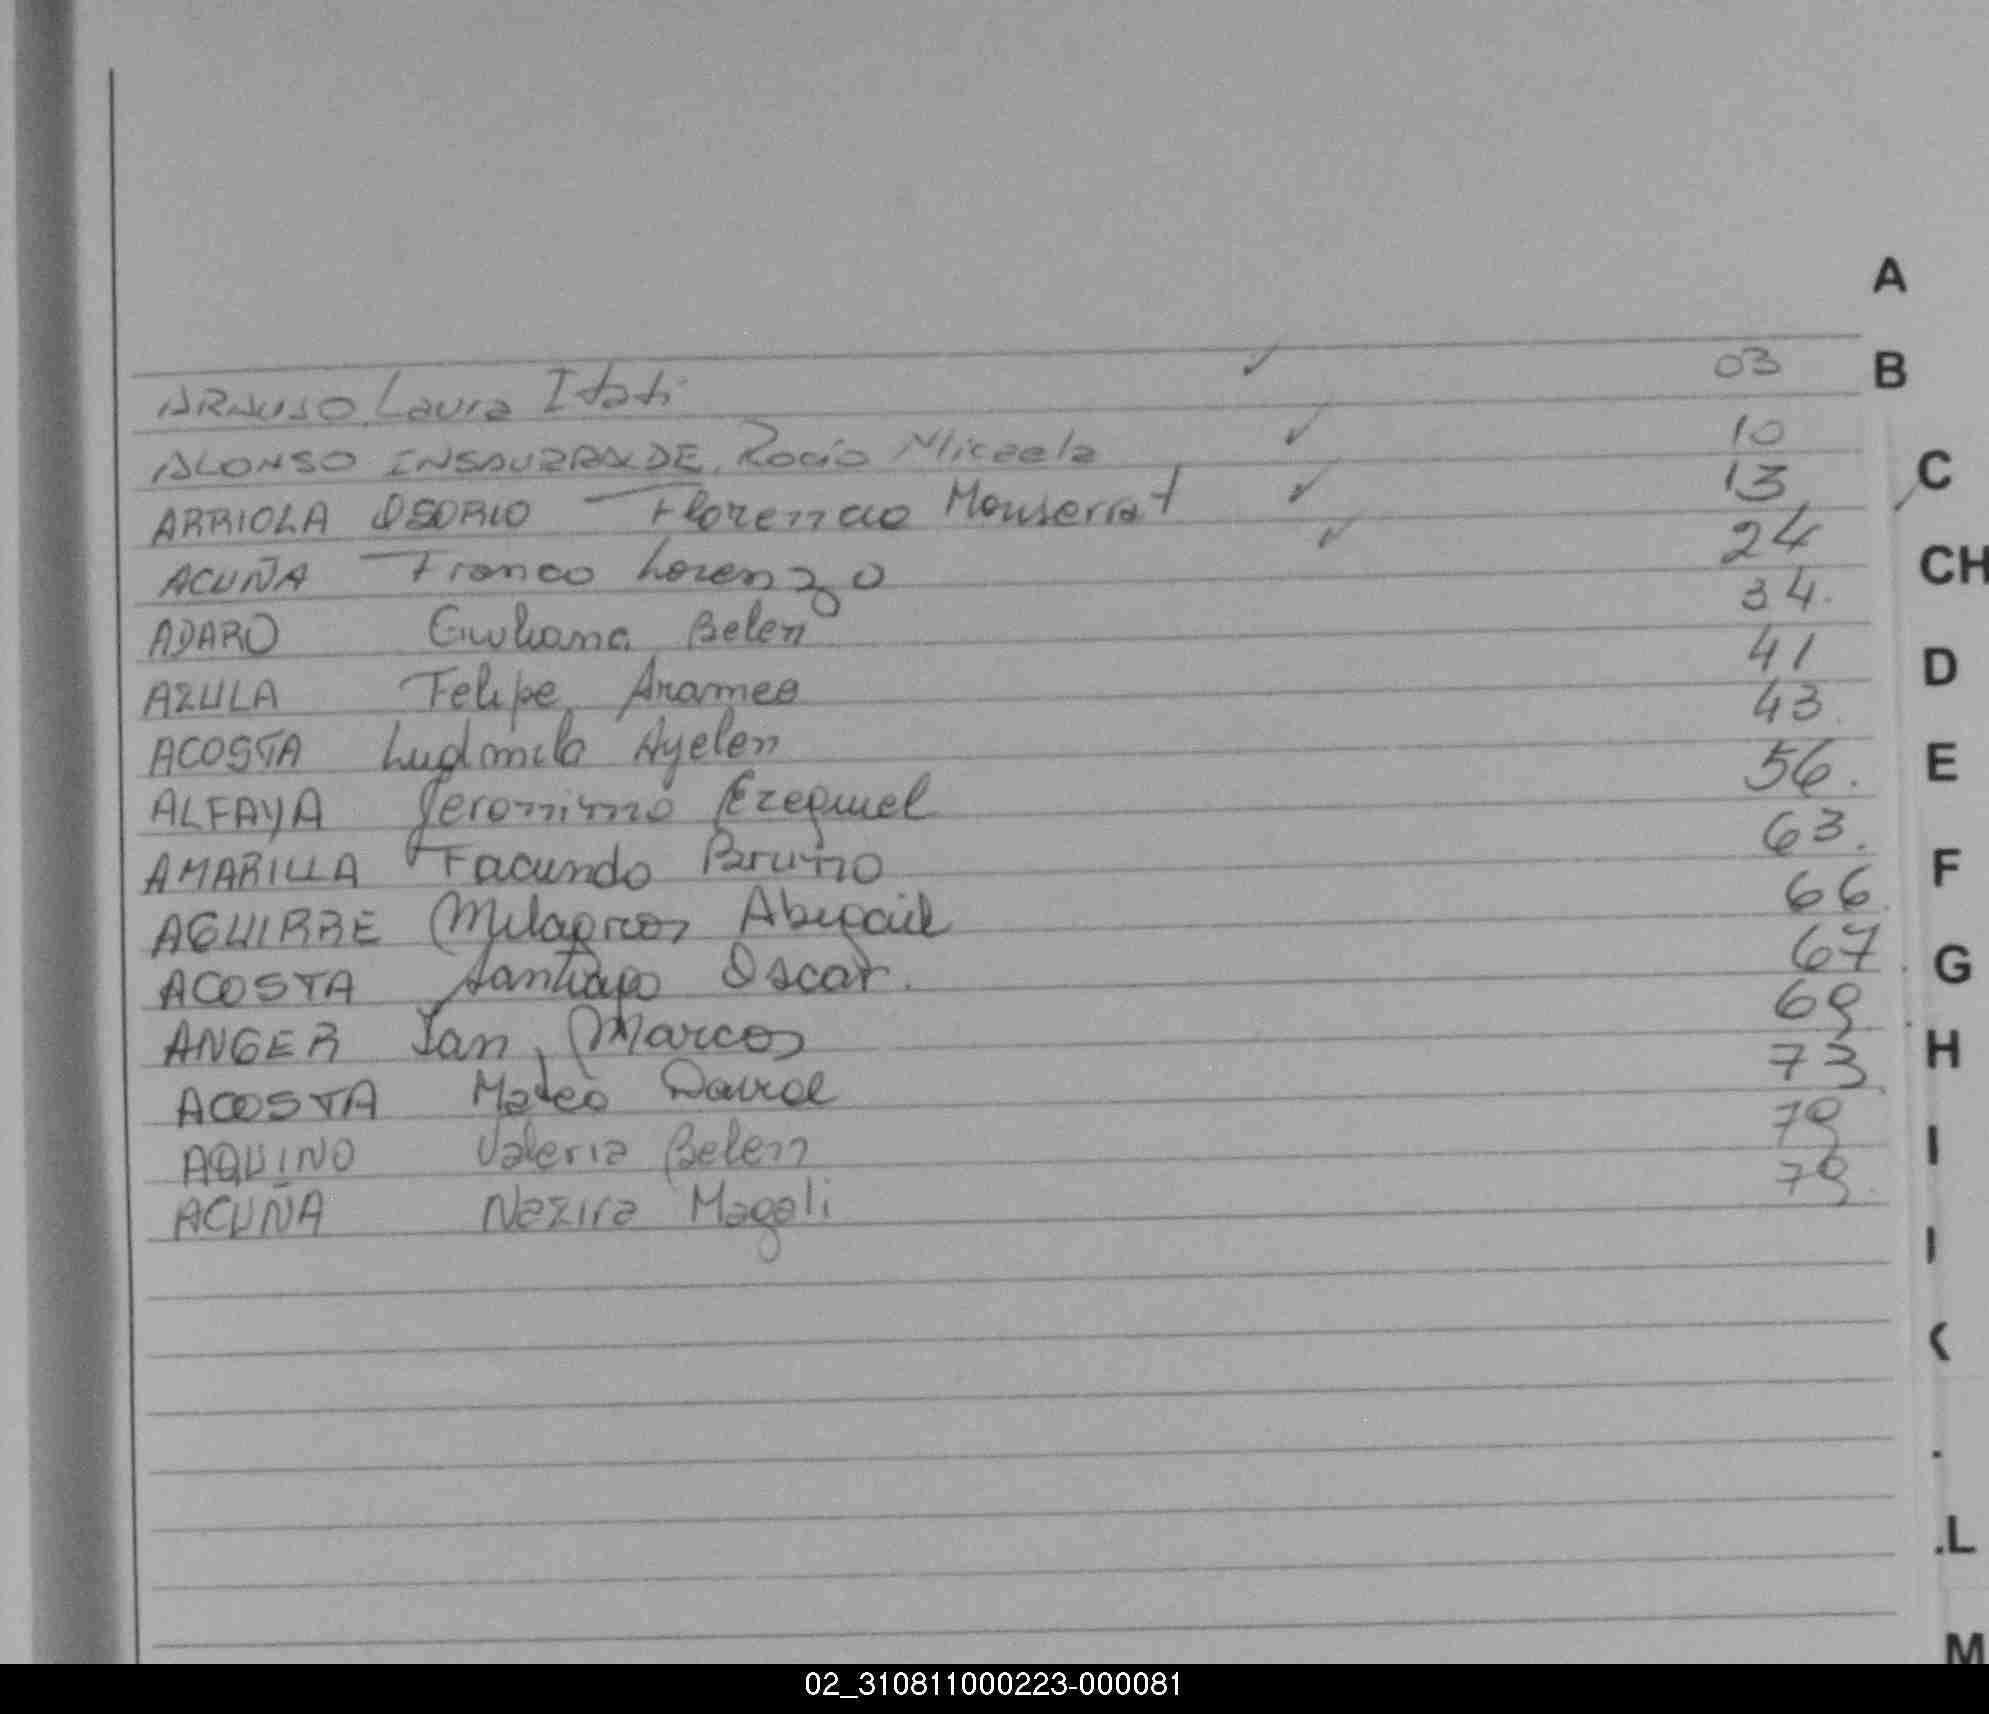 A
ARAUJO, Laura Itatí 03
B
ALONSO INSAURRALDE, Rocío Micaela 10
ARRIOLA OSORIO Florencia Monserrat 13
C
ACUÑA Franco Lorenzo 24
CH
ADARO Giuliana Belen 34.
AZULA Felipe 41
D
ACOSTA Ludmila Ayelen 43.
ALFAYA Jeronimo Ezequiel 56.
E
AMARILLA Facundo Bruno 63.
AGUIRRE Milagros Abigail 66.
F
ACOSTA Santiago Oscar. 67.
G
ANGER Ian, Marcos 69.
ACOSTA Mateo David 73
H
AQUINO Valeria Belen 79
I
ACUÑA Nazira Magali 79.
.L
M
02_310811000223-000081